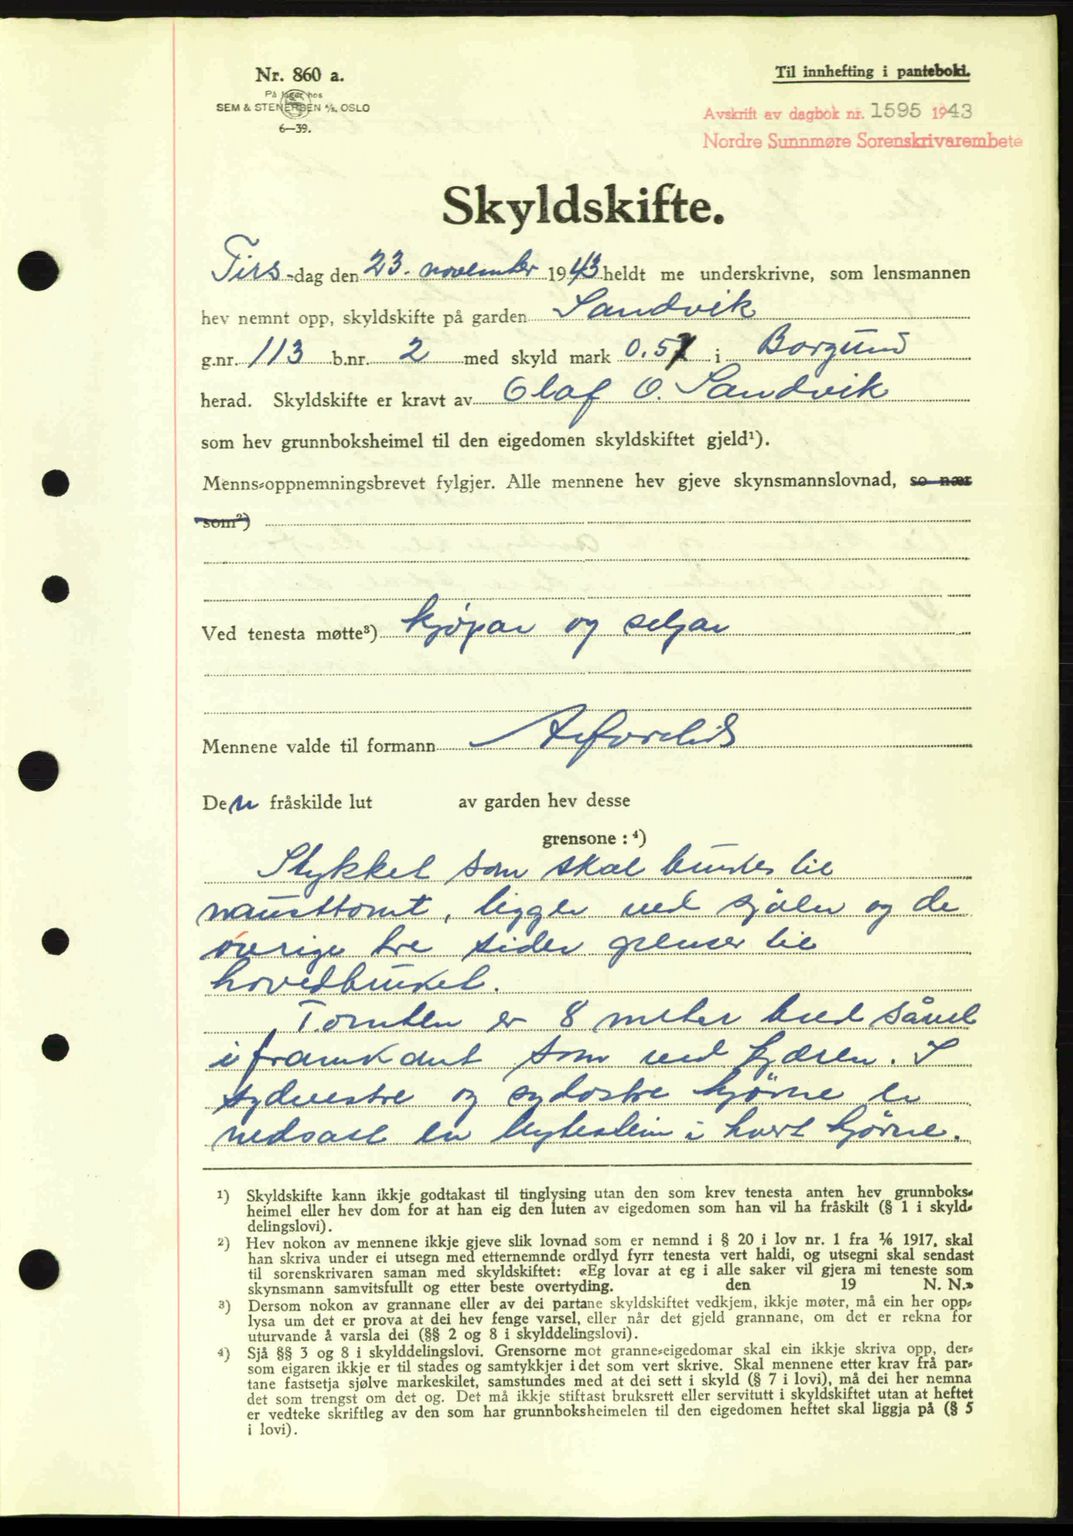 Nr. 860 a.
På lager hos
SEM & STENERSEN A/S, OSLO
6—39.
Til innhefting i pantebok.
Avskrift av dagbok nr. 1595 1943
Nordre Sunnmøre Sorenskrivarembete
Skyldskifte.
Tirs-dag den 23. november 1943 heldt me underskrivne, som lensmannen
hev nemnt opp, skyldskifte på garden Sandvik
g.nr. 113 b.nr. 2 med skyld mark 0.57 i Borgund
herad. Skyldskifte er kravt av Olaf O. Sandvik
som hev grunnboksheimel til den eigedomen skyldskiftet gjeld¹).
Menns-oppnemningsbrevet fylgjer. Alle mennene hev gjeve skynsmannslovnad, so nær
som²)
Ved tenesta møtte³) kjøpar og seljar
Mennene valde til formann
Den fråskilde lut av garden hev desse
grensone : ⁴)
Stykket som skal brukes til
nausttomt, ligger ved sjøen og de
øvrige tre sider grenser til
hovedbruket.
Tomten er 8 meter bred såvel
i framkant som ved fjæren. I
sydvestre og sydostre hjørne er
nedsatt en bytestein i hvert hjørne.
¹) Skyldskifte kann ikkje godtakast til tinglysing utan den som krev tenesta anten hev grunnboks-
heimel eller hev dom for at han eig den luten av eigedomen som han vil ha fråskilt (§ 1 i skyld-
delingslovi).
²) Hev nokon av mennene ikkje gjeve slik lovnad som er nemnd i § 20 i lov nr. 1 fra 1/6 1917, skal
han skriva under ei utsegn med etternemnde ordlyd fyrr tenesta vert haldi, og utsegni skal sendast
til sorenskrivaren saman med skyldskiftet: «Eg lovar at eg i alle saker vil gjera mi teneste som
skynsmann samvitsfullt og etter beste overtyding. den 19 N. N.»
³) Dersom nokon av grannane eller av dei partane skyldskiftet vedkjem, ikkje møter, må ein her opp-
lysa um det er prova at dei hev fenge varsel, eller når det gjeld grannane, om det er rekna for
uturvande å varsla dei (§§ 2 og 8 i skylddelingslovi).
⁴) Sjå §§ 3 og 8 i skylddelingslovi. Grensorne mot granne-eigedomar skal ein ikkje skriva opp, der-
som eigaren ikkje er til stades og samtykkjer i det som vert skrive. Skal mennene etter krav frå par-
tane fastsetja sjølve markeskilet, samstundes med at dei sett i skyld (§ 7 i lovi), må dei her nemna
det som trengst om det og. Det må ikkje stiftast bruksrett eller servitutt i skyldskiftet utan at heftet
er vedteke skriftleg av den som har grunnboksheimelen til den eigedomen heftet skal liggja på (§ 5
i lovi).